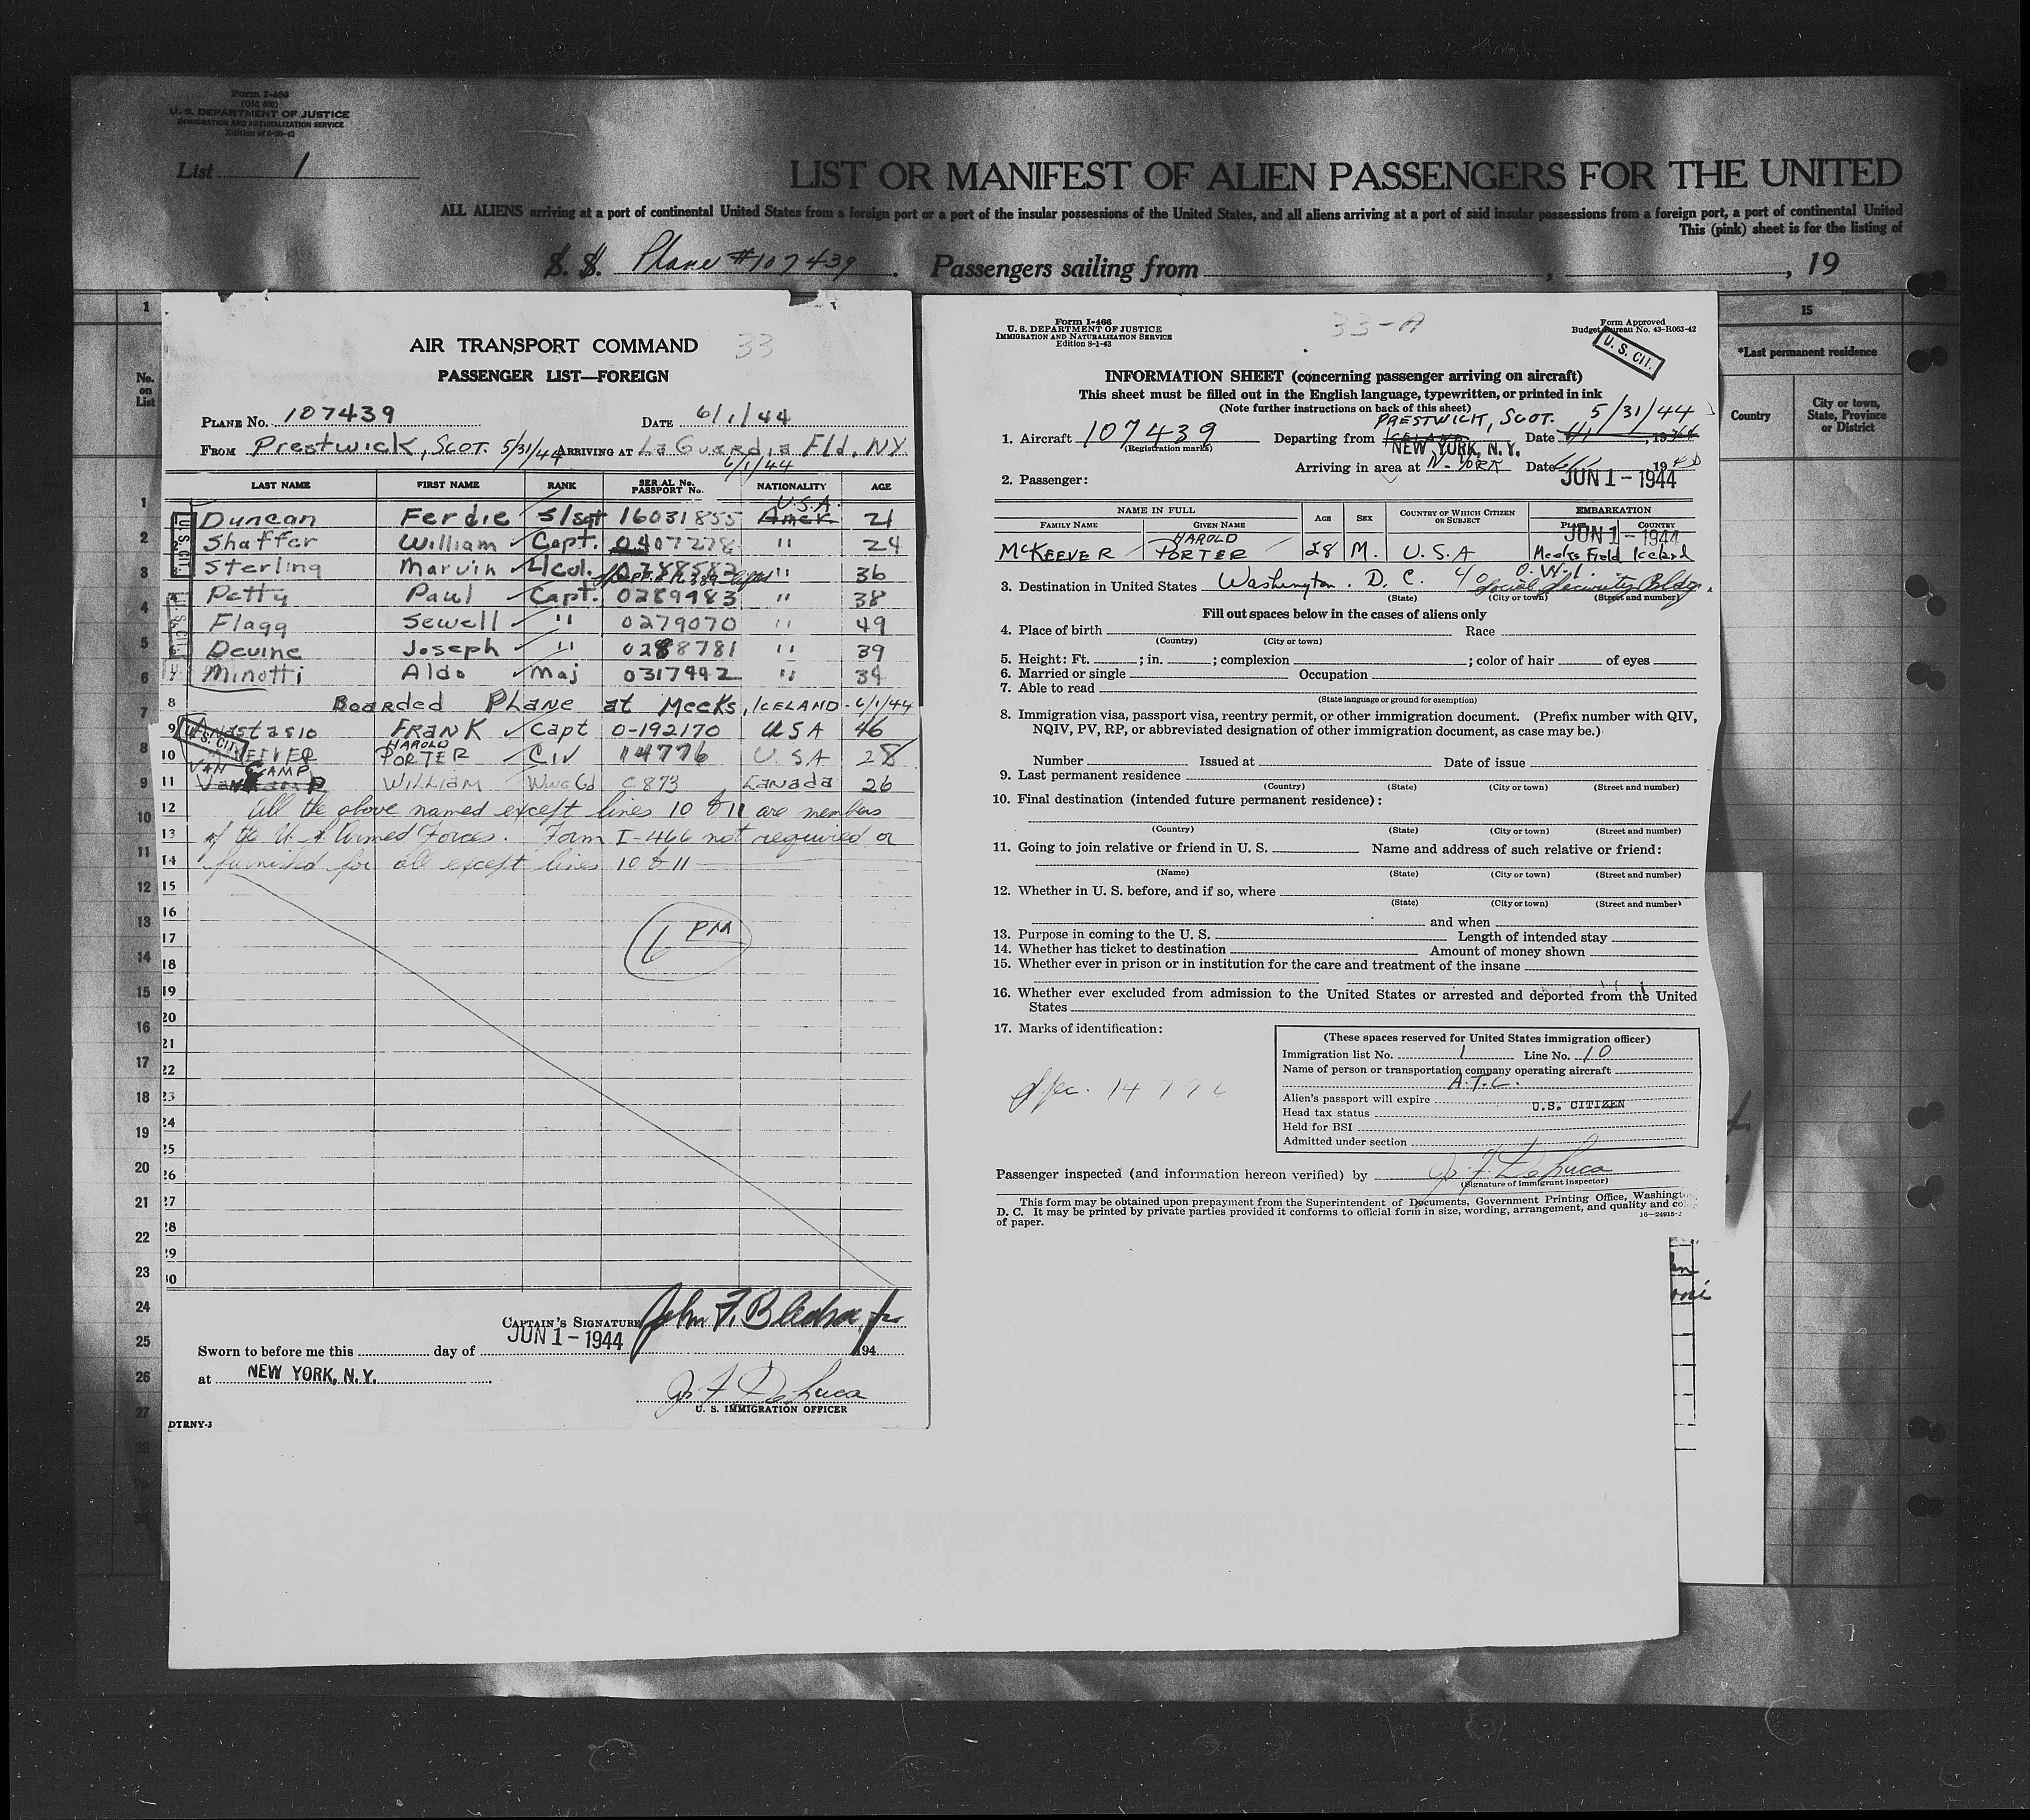 Form I-466
(Old 500)
U. S. DEPARTMENT OF JUSTICE
IMMIGRATION AND NATURALIZATION SERVICE
List 1
LIST OR MANIFEST OF ALIEN PASSENGERS FOR THE UNITED
ALL ALIENS arriving at a port of continental United States from a foreign port or a port of the insular possessions of the United States, and all aliens arriving at a port of said insular possessions from a foreign port, a port of continental United
This (pink) sheet is for the listing of
S. S. Plane #107439. Passengers sailing from , , 19
AIR TRANSPORT COMMAND 33
PASSENGER LIST—FOREIGN
PLANE NO. 107439 DATE 6/1/44
FROM Prestwick, SCOT. 5/31/44 ARRIVING AT La Guardia Fld. NY
6/1/44
LAST NAME FIRST NAME RANK SERIAL No. PASSPORT No. NATIONALITY AGE
U.S.A.
1 Duncan Ferdie S/Sgt 16031855 Amer. 21
2 Shaffer William Capt. 0407278 " 24
3 Sterling Marvin Lt Col. " 36
4 Petty Paul Capt. 0289983 " 38
5 Flagg Sewell " 0279070 " 49
6 Devine Joseph " 0288781 " 39
7 Minotti Aldo Maj 0317992 " 34
8 Boarded Plane at Meeks, ICELAND - 6/1/44
9 Anastasio FRANK Capt 0-192170 USA 46
U. S. CIT.
HAROLD
10 McKEEVER PORTER Civ 14776 U.S.A 28
VAN CAMP
11 WILLIAM C873 Canada 26
12 All the above named except lines 10 & 11 are members
13 of the U. S. Armed Forces. Form I-466 not required or
14 furnished for all except lines 10 & 11
15
16
6 PM
17
18
19
20
21
22
23
24
25
26
27
28
29
30
CAPTAIN'S SIGNATURE
Sworn to before me this day of JUN 1 - 1944 194
at NEW YORK, N.Y.
J. F. DeLuca
U. S. IMMIGRATION OFFICER
DTRNY-3
33-A
Form I-466
U. S. DEPARTMENT OF JUSTICE
IMMIGRATION AND NATURALIZATION SERVICE
Edition 8-1-43
Form Approved
Budget Bureau No. 43-R063-42
U. S. CIT.
INFORMATION SHEET (concerning passenger arriving on aircraft)
This sheet must be filled out in the English language, typewritten, or printed in ink
(Note further instructions on back of this sheet)
PRESTWICK, SCOT. 5/31/44
1. Aircraft 107439 Departing from Iceland Date 19
(Registration marks)
NEW YORK, N.Y.
Arriving in area at N. YORK Date 19
JUN 1 - 1944
2. Passenger:
NAME IN FULL AGE SEX COUNTRY OF WHICH CITIZEN OR SUBJECT EMBARKATION
FAMILY NAME GIVEN NAME PLACE COUNTRY
JUN 1 - 1944
HAROLD
McKEEVER PORTER 28 M. U.S.A Meeks Field Iceland
O.W.I
3. Destination in United States Washington. D.C. Social Security Bldg.
(State) (City or town) (Street and number)
Fill out spaces below in the cases of aliens only
4. Place of birth Race
(Country) (City or town)
5. Height: Ft. ; in. ; complexion ; color of hair of eyes
6. Married or single Occupation
7. Able to read
(State language or ground for exemption)
8. Immigration visa, passport visa, reentry permit, or other immigration document. (Prefix number with QIV,
NQIV, PV, RP, or abbreviated designation of other immigration document, as case may be.)
Number Issued at Date of issue
9. Last permanent residence
(Country) (State) (City or town) (Street and number)
10. Final destination (intended future permanent residence):
(Country) (State) (City or town) (Street and number)
11. Going to join relative or friend in U. S. Name and address of such relative or friend:
(Name) (State) (City or town) (Street and number)
12. Whether in U. S. before, and if so, where
(State) (City or town) (Street and number)
and when
13. Purpose in coming to the U. S. Length of intended stay
14. Whether has ticket to destination Amount of money shown
15. Whether ever in prison or in institution for the care and treatment of the insane
16. Whether ever excluded from admission to the United States or arrested and deported from the United
States
17. Marks of identification:
(These spaces reserved for United States immigration officer)
Immigration list No. 1 Line No. 10
Name of person or transportation company operating aircraft
A.T.C.
Alien's passport will expire
U.S. CITIZEN
Head tax status
Held for BSI
Admitted under section
14776
Passenger inspected (and information hereon verified) by J. F. DeLuca
(Signature of immigrant inspector)
This form may be obtained upon prepayment from the Superintendent of Documents, Government Printing Office,
D. C. It may be printed by private parties provided it conforms to official form in size, wording, arrangement, and quality and
of paper.
16—24915-2
15
*Last permanent residence
Country City or town, State, Province or District
No. on List
1
2
3
4
5
6
7
8
9
10
11
12
13
14
15
16
17
18
19
20
21
22
23
24
25
26
27
28